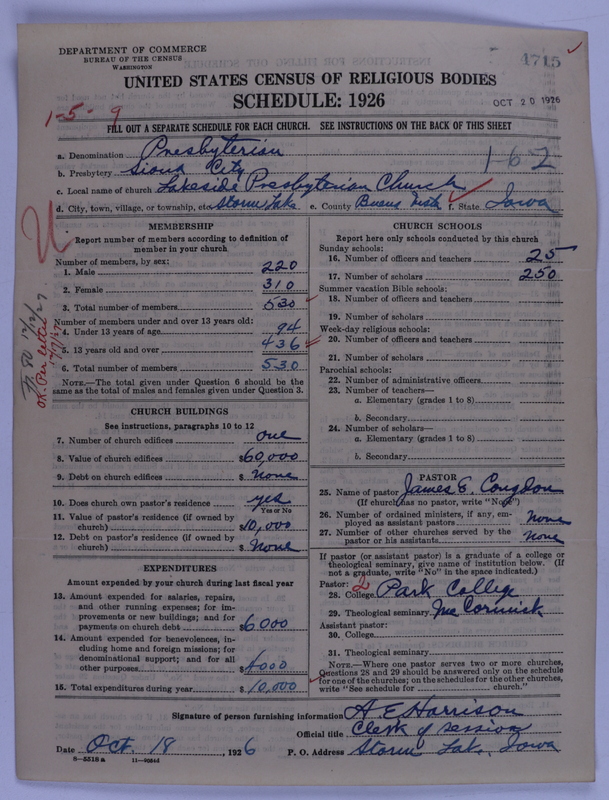 DEPARTMENT OF COMMERCE
BUREAU OF THE CENSUS
WASHINGTON
4715
UNITED STATES CENSUS OF RELIGIOUS BODIES
SCHEDULE: 1926
OCT 20 1926
1-5-9
FILL OUT A SEPARATE SCHEDULE FOR EACH CHURCH. SEE INSTRUCTIONS ON THE BACK OF THIS SHEET
a. Denomination Presbyterian
1-62
b. Presbytery Sioux City
c. Local name of church Lakeside Presbyterian Church
d. City, town, village, or township, etc Storm Lake e. County Buena Vista f. State Iowa
MEMBERSHIP
Report number of members according to definition of member in your church
Number of members, by sex:
1. Male 220
2. Female 310
3. Total number of members 530
Number of members under and over 13 years old:
4. Under 13 years of age 94
5. 13 years old and over 436
6. Total number of members 530
NOTE.—The total given under Question 6 should be the
same as the total of males and females given under Question 3.
CHURCH BUILDINGS
See instructions, paragraphs 10 to 12
7. Number of church edifices one
8. Value of church edifices $60,000
9. Debt on church edifices $ None
10. Does church own pastor's residence yes
Yes or No
11. Value of pastor's residence (if owned by
church) $10,000
12. Debt on pastor's residence (if owned by
church) $ None
EXPENDITURES
Amount expended by your church during last fiscal year
13. Amount expended for salaries, repairs,
and other running expenses; for im-
provements or new buildings; and for
payments on church debt $6000
14. Amount expended for benevolences, in-
cluding home and foreign missions; for
denominational support; and for all
other purposes $4000
15. Total expenditures during year $10,000
CHURCH SCHOOLS
Report here only schools conducted by this church
Sunday schools:
16. Number of officers and teachers 25
17. Number of scholars 250
Summer vacation Bible schools:
18. Number of officers and teachers
19. Number of scholars
Week-day religious schools:
20. Number of officers and teachers
21. Number of scholars
Parochial schools:
22. Number of administrative officers
23. Number of teachers—
a. Elementary (grades 1 to 8)
b. Secondary
24. Number of scholars—
a. Elementary (grades 1 to 8)
b. Secondary
PASTOR
25. Name of pastor James E. Congdon
(If church has no pastor, write "No")
26. Number of ordained ministers, if any, em-
ployed as assistant pastors none
27. Number of other churches served by the
pastor or his assistants none
If pastor (or assistant pastor) is a graduate of a college or
theological seminary, give name of institution below. (If
not a graduate, write "No" in the space indicated.)
Pastor: 2
28. College Park College
29. Theological seminary McCormick
Assistant pastor:
30. College
31. Theological seminary
NOTE.—Where one pastor serves two or more churches,
Questions 28 and 29 should be answered only on the schedule
for one of the churches; on the schedules for the other churches,
write "See schedule for church."
Signature of person furnishing information A E Harrison
Official title Clerk of session
Date Oct. 18, 1926 P. O. Address Storm Lake, Iowa
8—5518a 11—9054d